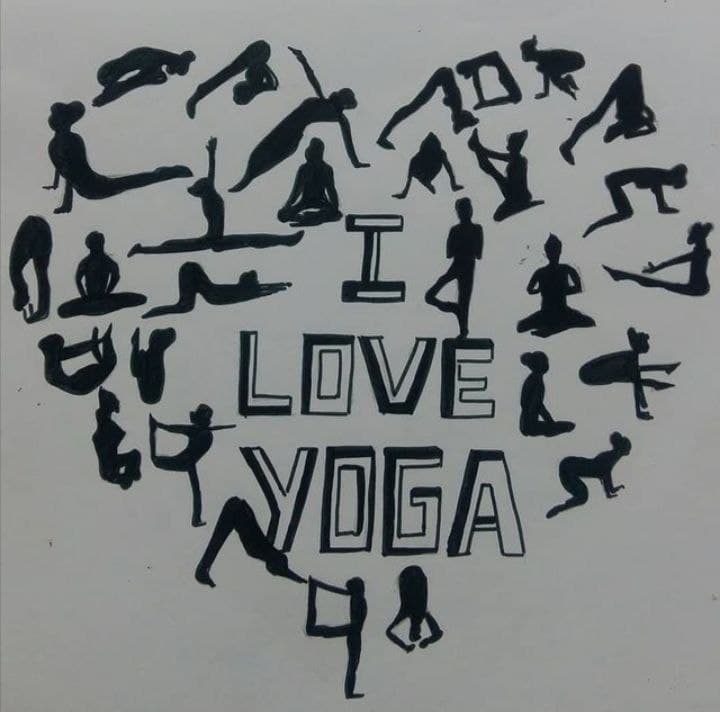 I
LOVE
YOGA